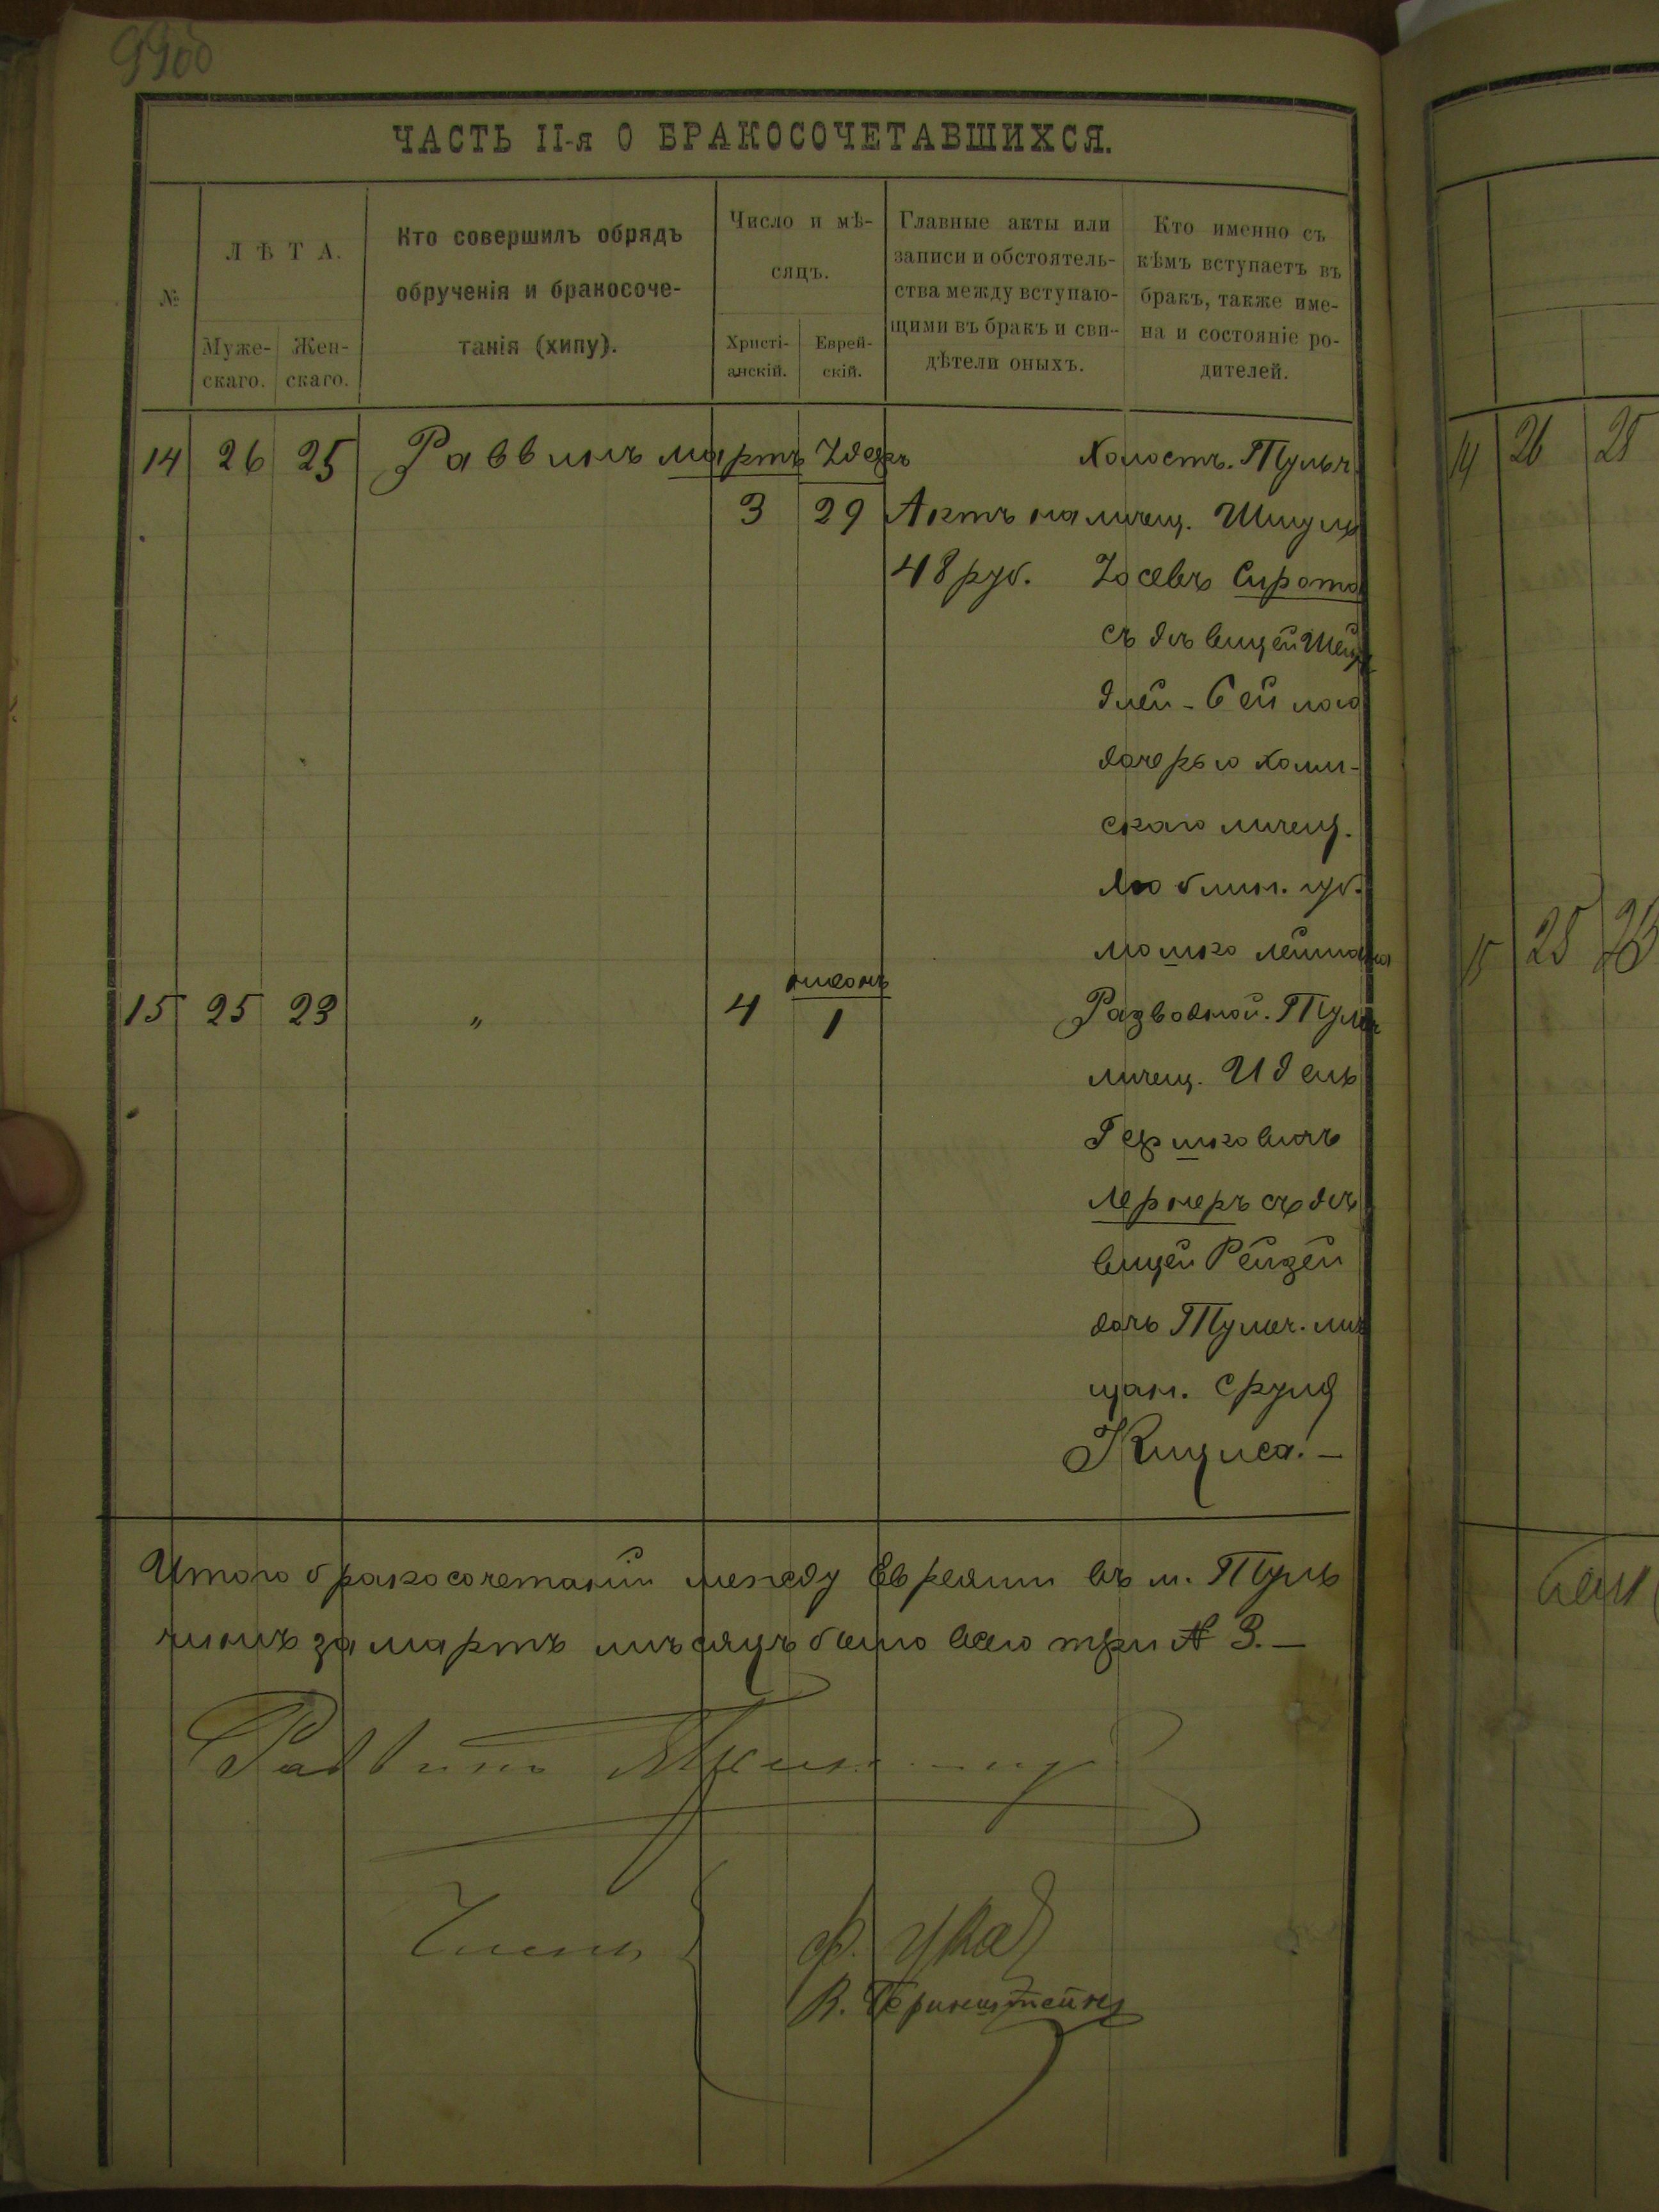 ЧАСТЬ II-я О БРАКОСОЧЕТАВШИХСЯ.
№
ЛѢТА.
Муже-
скаго.
Жен-
скаго.
Кто совершилъ обрядъ
обрученія и бракосоче-
танія (хипу).
Число и мѣ-
сяцъ.
Христі-
анскій.
Еврей-
скій.
Главные акты или
записи и обстоятель-
ства между вступаю-
щими въ бракъ и сви-
дѣтели оныхъ.
Кто именно съ
кѣмъ вступаетъ въ
бракъ, также име-
на и состояніе ро-
дителей.
14 26 25 Раввинъ мартъ Iдаръ
3 29
Актъ на
48 руб.
Холостъ. Тульч.
мѣщ. Шмуль
Іосевъ Сирота
съ дѣвицей Шейн
длей-Бейлою
дочерью холм-
скаго мѣщ.
Люблин. губ.
Мошко
15 25 23 " 4 нисонъ
1
Разводной. Тульч
мѣщ. Идель
Гершковичъ
Лернеръ съ дѣ
вицей Рейзей
дочь Тульч. мѣ
щан. Сруля
Итого бракосочетаній между Евреями въ м. Туль
чинѣ за мартъ мѣсяцъ было всего три № 3.—
Раввинъ
Члены
14 26 25
15 25 23